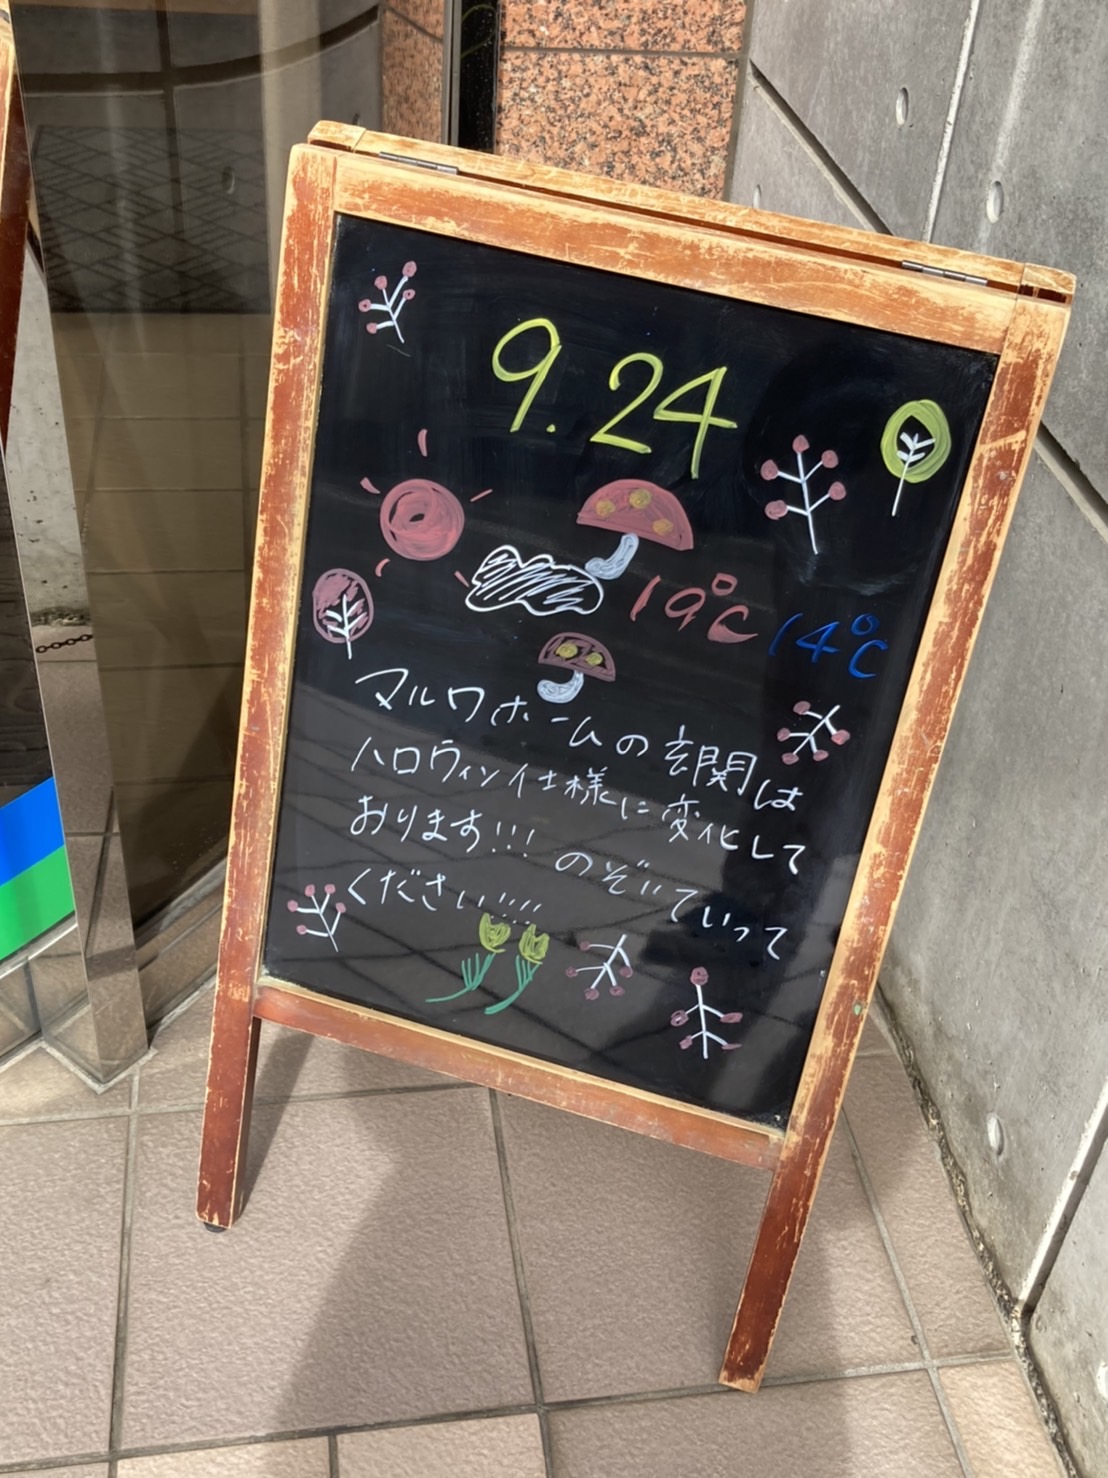 9.24
19℃ 14℃
マルワホームの玄関は
ハロウィン仕様に変化して
おります!!! のぞいていって
ください!!!!